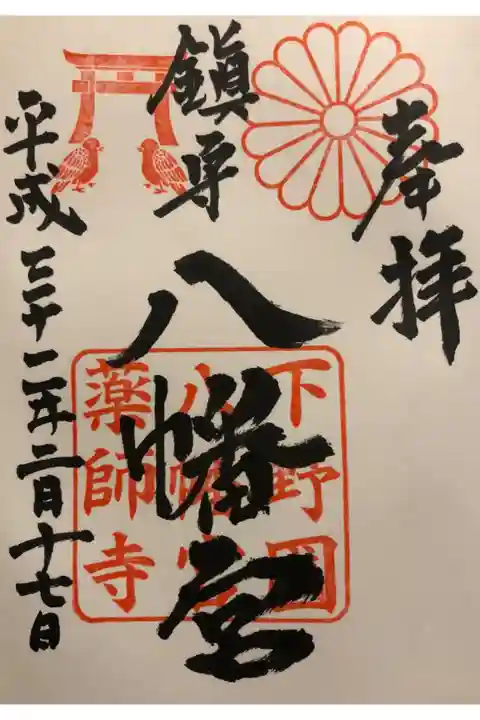 奉拝
鎭守
八幡宮
下野国
八幡宮
薬師寺
平成三十一年二月十七日